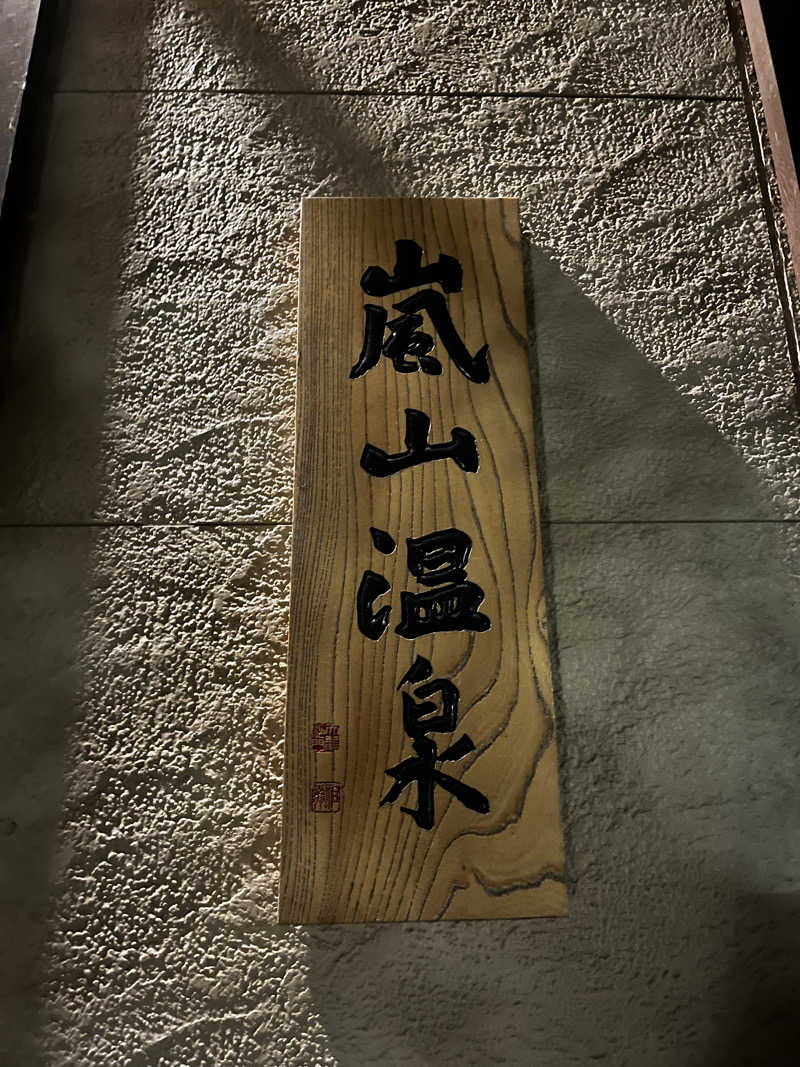 嵐山温泉